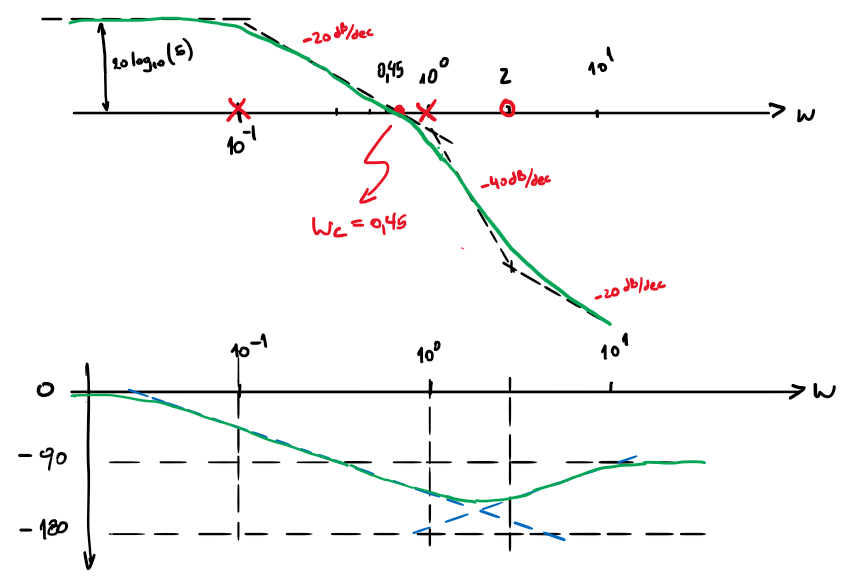 -20 dB/dec
20 log₁₀(5)
0,45 10⁰ 2 10¹
10⁻¹
w
-40 dB/dec
Wc = 0,45
-20 dB/dec
10⁻¹ 10⁰ 10¹
0
w
-90
-180